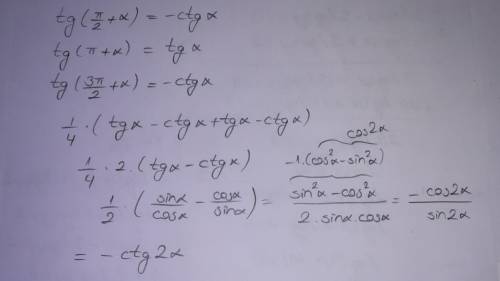 tg(π/2 + α) = -ctgα
tg(π + α) = tgα
tg(3π/2 + α) = -ctgα
1/4 · (tgα - ctgα + tgα - ctgα)
cos2α
1/4 · 2 · (tgα - ctgα) -1·(cos²α - sin²α)
1/2 · (sinα/cosα - cosα/sinα) = (sin²α - cos²α)/(2·sinα·cosα) = -cos2α/sin2α
= -ctg2α